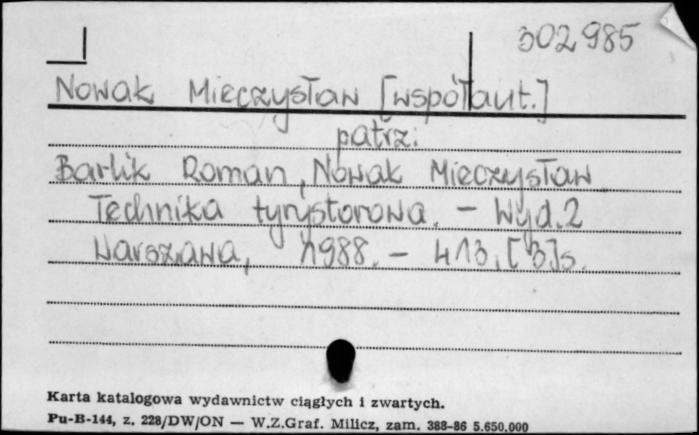 302985
Nowak Mieczysław [współaut.]
patrz:
Barlik Roman, Nowak Mieczysław
Technika tyrystorowa. – Wyd. 2
Warszawa, 1988. – 413, [3]s.
Karta katalogowa wydawnictw ciągłych i zwartych.
Pu-B-144, z. 228/DW/ON — W.Z.Graf. Milicz, zam. 388-86 5.650.000